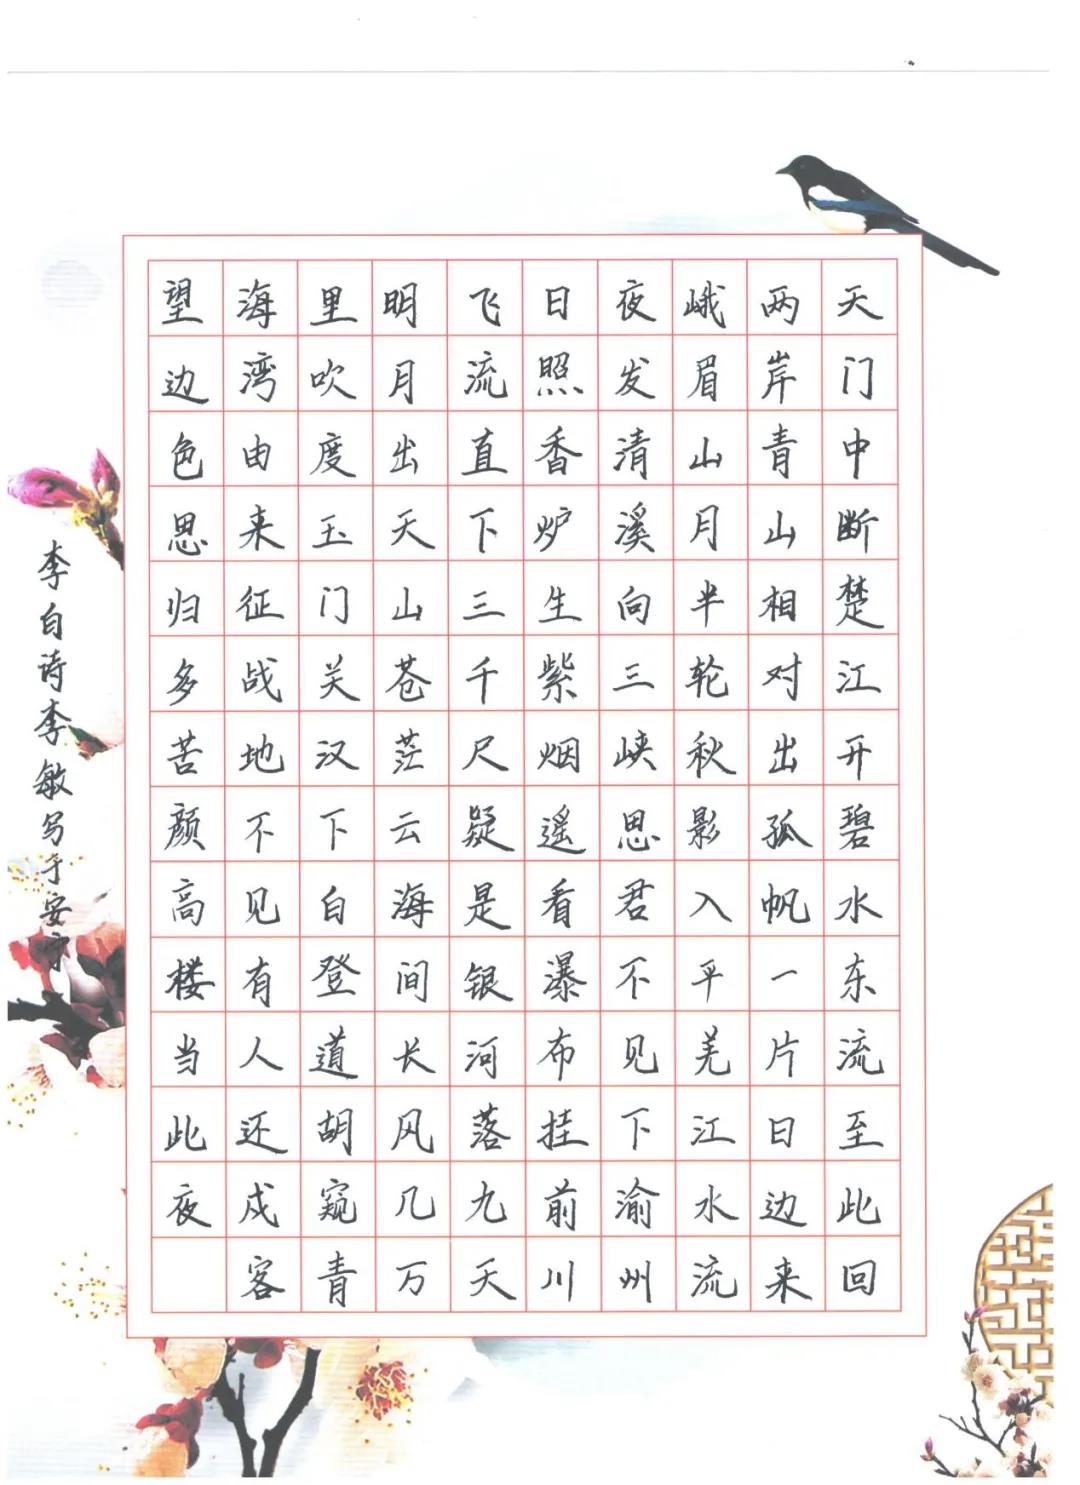 天门中断楚江开碧水东流至此回
两岸青山相对出孤帆一片日边来
峨眉山月半轮秋影入平羌江水流
夜发清溪向三峡思君不见下渝州
日照香炉生紫烟遥看瀑布挂前川
飞流直下三千尺疑是银河落九天
明月出天山苍茫云海间长风几万
里吹度玉门关汉下白登道胡窥青
海湾由来征战地不见有人还戍客
望边色思归多苦颜高楼当此夜
李白诗李敏写于安宁